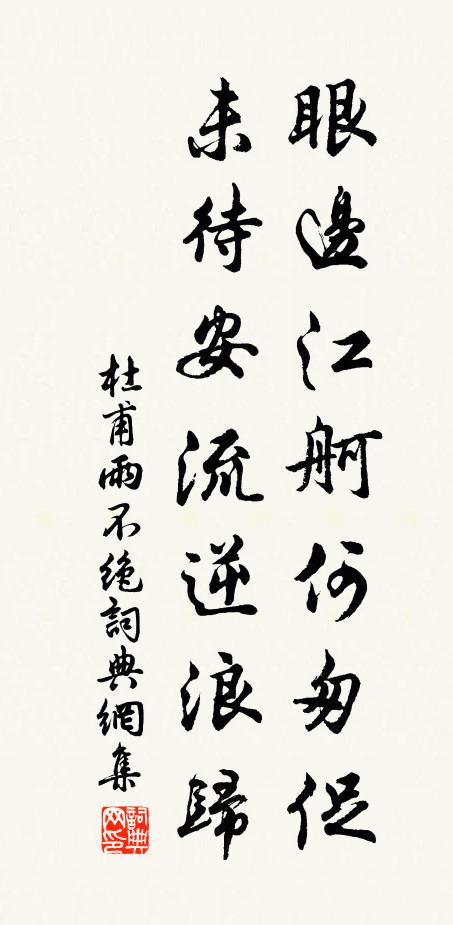 眼邊江舸何匆促
未待安流逆浪歸
杜甫雨不絕詞典網集
詞典網印